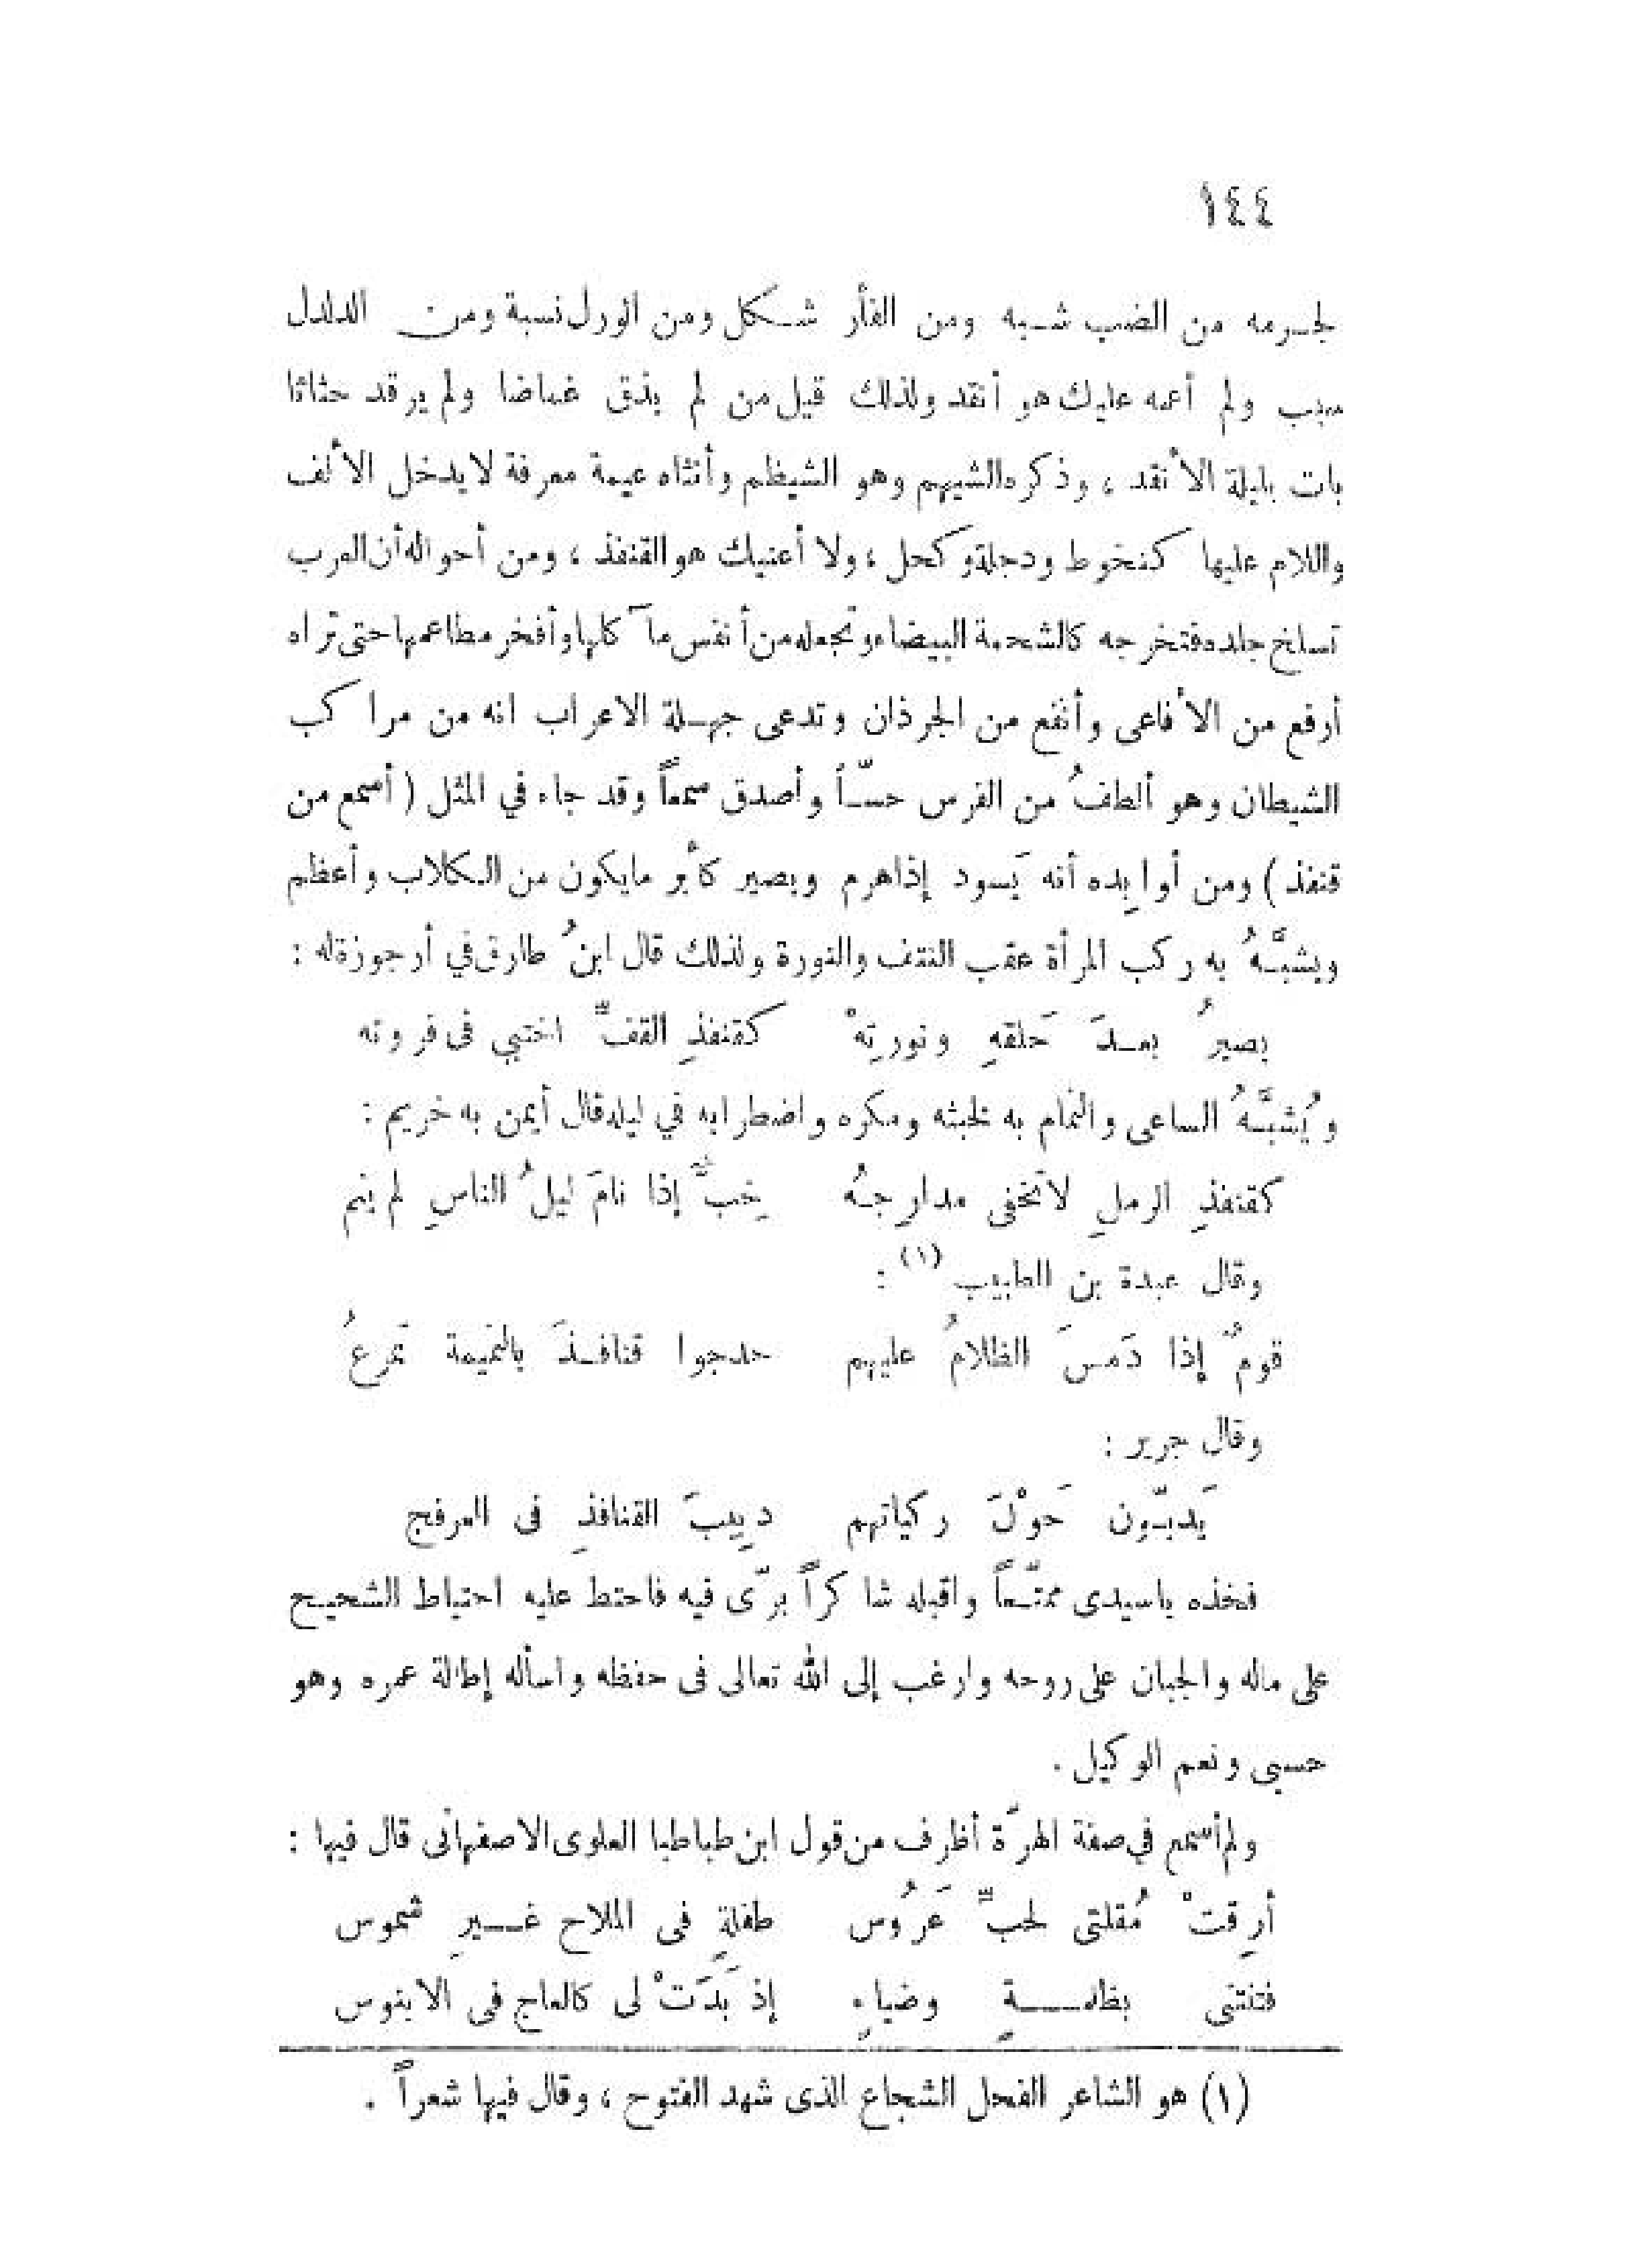 ١٤٤
لجرمه من الضب شبه ومن الفأر شكل ومن الورل نسبة ومن الدلدل
سبب ولم أعمه عليك هو أنقد ولذلك قيل من لم يذق غماضا ولم يرقد حثاثا
بات بليلة الأنقد ، وذكره الشيهم وهو الشيظم وأنثاه عيمة معرفة لا يدخل الألف
واللام عليها كنخوط ودجلة وكحل ، ولا أعنيك هو القنفذ ، ومن أحواله أن العرب
تسلخ جلده فتخرجه كالشحمة البيضاء وتجعله من أنفس مآ كلها وأفخر مطاعمها حتى تراه
أرفع من الأفاعى وأنفع من الجرذان وتدعى جهلة الاعراب انه من مراكب
الشيطان وهو ألطفُ من الفرس حسّاً وأصدق سمعاً وقد جاء في المثل ( أسمع من
قنفذ ) ومن أوابِده أنه يَسود إذا هرم ويصير كأبر مايكون من الكلاب وأعظم
ويشبَّهُ به ركب المرأة عقب النتف والنورة ولذلك قال ابنُ طارق في أرجوزة له :
يصيرُ بعدَ حَلقهِ ونورتِهْ كقنفذِ القفِّ اختبي فى فروته
ويُشبَّهُ الساعى والنمام به لخبثه ومكره واضطرابه في ليله قال أيمن به خريم :
كقنفذِ الرملِ لا تخفى مدارجهُ خِبٌّ إذا نامَ ليلُ الناسِ لم ينم
وقال عبدة بن الطبيب (١) :
قومٌ إذا دَمسَ الظلامُ عليهم حدجوا قنافذَ بالنميمة تمرعُ
وقال جرير :
يَدبّون حَوْلَ ركياتهم دبِيبَ القنافذِ فى العرفج
فخذه ياسيدى ممتّعاً واقبله شاكراً برّى فيه فاحتط عليه احتياط الشحيح
على ماله والجبان على روحه وارغب إلى الله تعالى فى حفظه واسأله إطالة عمره وهو
حسبى ونعم الوكيل .
ولم أسمع في صفة الهرّة أظرف من قول ابن طباطبا العلوى الاصفهانى قال فيها :
أرِقتْ مُقلتى لحبِّ عَرُوس طفلةٍ فى الملاح غيرِ شموس
فتنتنى بظلمةٍ وضياءٍ إذ بَدَتْ لى كالعاج فى الابنوس
(١) هو الشاعر الفحل الشجاع الذى شهد الفتوح ، وقال فيها شعراً .